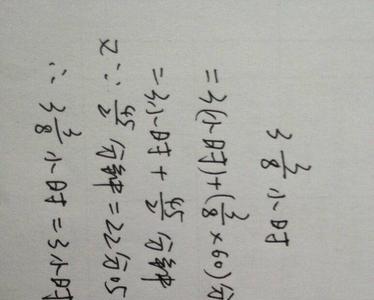 3 3/8 小时
=3(小时)+(3/8×60)分
=3小时+45/2分钟
又∵ 45/2分钟=22分05
∴ 3 3/8 小时=3小时